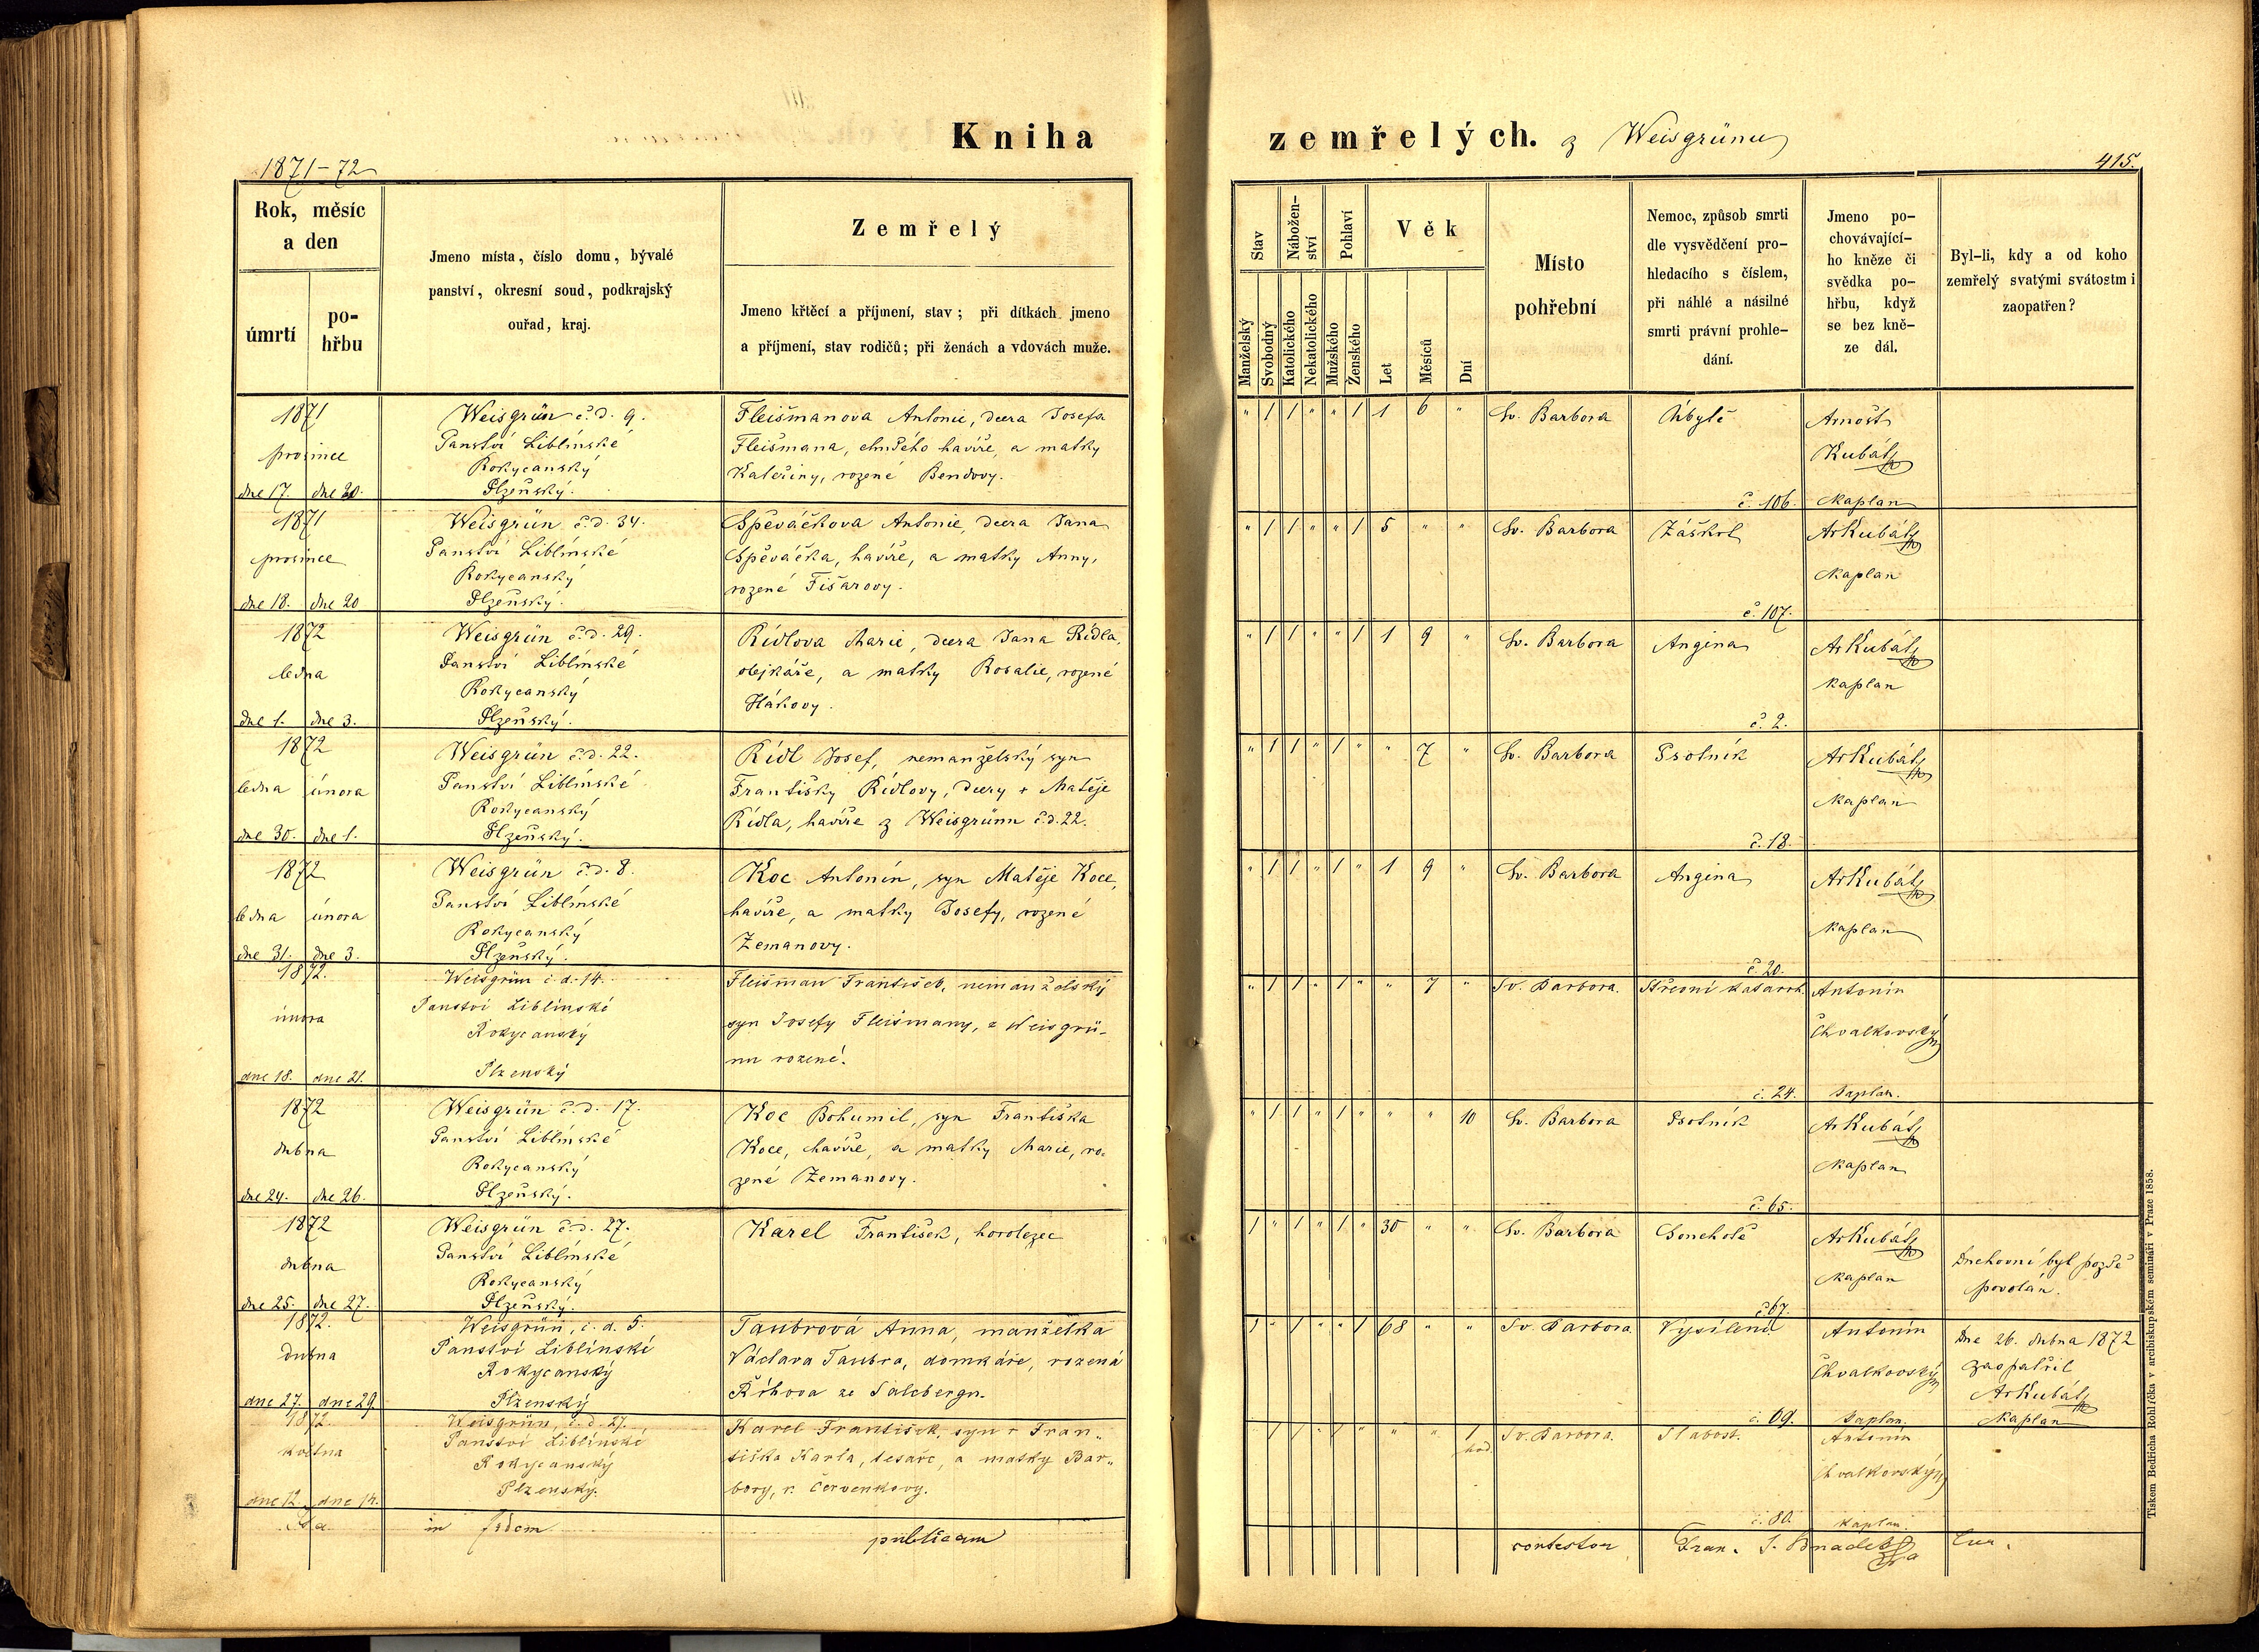 Kniha zemřelých. z Weisgrünu
1871-72
415.
Rok, měsíc
a den
úmrtí
po-
hřbu
Jmeno místa, číslo domu, bývalé
panství, okresní soud, podkrajský
ouřad, kraj.
Zemřelý
Jmeno křtěcí a příjmení, stav; při dítkách jmeno
a příjmení, stav rodičů; při ženách a vdovách muže.
Stav
Manželský
Svobodný
Nábožen-
ství
Katolického
Nekatolického
Pohlaví
Mužského
Ženského
Věk
Let
Měsíců
Dní
Místo
pohřební
Nemoc, způsob smrti
dle vysvědčení pro-
hledacího s číslem,
při náhlé a násilné
smrti právní prohle-
dání.
Jmeno po-
chovávající-
ho kněze či
svědka po-
hřbu, když
se bez kně-
ze dál.
Byl-li, kdy a od koho
zemřelý svatými svátostmi
zaopatřen?
1871
prosince
dne 17. dne 20.
Weisgrün č.d. 9.
Panství Liblínské
Rokycanský
Plzeňský.
Fleišmanova Antonie, dcera Josefa
Fleišmana, havíře, a matky
Kateřiny, rozené Bendovy.
" 1 1 " " 1 1 6 "
Sv. Barbora
Úbytě
č. 106.
Arnošt
Kubát
kaplan
1871
prosince
dne 18. dne 20
Weisgrün č.d. 34.
Panství Liblínské
Rokycanský
Plzeňský.
Spěváčkova Antonie, dcera Jana
Spěváčka, havíře, a matky Anny,
rozené Fišarovy.
" 1 1 " " 1 5 " "
Sv. Barbora
Záškrt
č. 107.
ArKubát
kaplan
1872
ledna
dne 1. dne 3.
Weisgrün č.d. 29.
Panství Liblínské
Rokycanský
Plzeňský.
Rídlova Marie, dcera Jana Rídla,
olejkáře, a matky Rosalie, rozené
Hákovy.
" 1 1 " " 1 1 9 "
Sv. Barbora
Angina
č. 2.
ArKubát
kaplan
1872
ledna února
dne 30. dne 1.
Weisgrün č.d. 22.
Panství Liblínské
Rokycanský
Plzeňský.
Rídl Josef, nemanželský syn
Františky Rídlovy, dcery + Matěje
Rídla, havíře z Weisgrünu č.d. 22.
" 1 1 " 1 " " 7 "
Sv. Barbora
Psotník
č. 18.
ArKubát
kaplan
1872
ledna února
dne 31. dne 3.
Weisgrün č.d. 8.
Panství Liblínské
Rokycanský
Plzeňský.
Koc Antonín, syn Matěje Koce,
havíře, a matky Josefy, rozené
Zemanovy.
" 1 1 " 1 " 1 9 "
Sv. Barbora
Angina
č. 20.
ArKubát
kaplan
1872.
února
dne 18. dne 21.
Weisgrün č.d. 14.
Panství Liblínské
Rokycanský
Plzenský
Fleišman František, nemanželský
syn Josefy Fleišmany, z Weisgrü-
nu rozené.
" 1 1 " 1 " " 7 "
Sv. Barbora.
Střevní katarrh.
č. 24.
Antonín
Chvalkovský
kaplan.
1872
dubna
dne 24. dne 26.
Weisgrün č.d. 17.
Panství Liblínské
Rokycanský
Plzeňský.
Koc Bohumil, syn Františka
Koce, havíře, a matky Marie, ro-
zené Zemanovy.
" 1 1 " 1 " " " 10
Sv. Barbora
Psotník
č. 65.
ArKubát
kaplan
1872
dubna
dne 25. dne 27.
Weisgrün č.d. 27.
Panství Liblínské
Rokycanský
Plzeňský.
Karel František, horolezec
1 " 1 " 1 " 30 " "
Sv. Barbora
Souchotě
č. 67.
ArKubát
kaplan
Duchovní byl pozdě
povolán.
1872.
dubna
dne 27. dne 29.
Weisgrün, č.d. 5.
Panství Liblínské
Rokycanský
Plzenský
Taubrová Anna, manželka
Václava Taubra, domkáře, rozená
Říhova ze Salcbergu.
1 " 1 " " 1 68 " "
Sv. Barbora.
Vysílení
č. 69.
Antonín
Chvalkovský
kaplan.
Dne 26. dubna 1872
zaopatřil
ArKubát
kaplan
1872.
května
dne 12. dne 14.
Weisgrün, č.d. 27.
Panství Liblínské
Rokycanský
Plzenský.
Karel František, syn Fran-
tiška Karla, tesaře, a matky Bar-
bory, r. Červenkovy.
1 1 " 1 " " " 1 hod.
Sv. Barbora.
Slabost.
č. 80.
Antonín
Chvalkovský
kaplan.
Ita in fidem publicam contestor Fran. Cur.
Tiskem Bedřicha Rohlíčka v arcibiskupském semináři v Praze 1858.